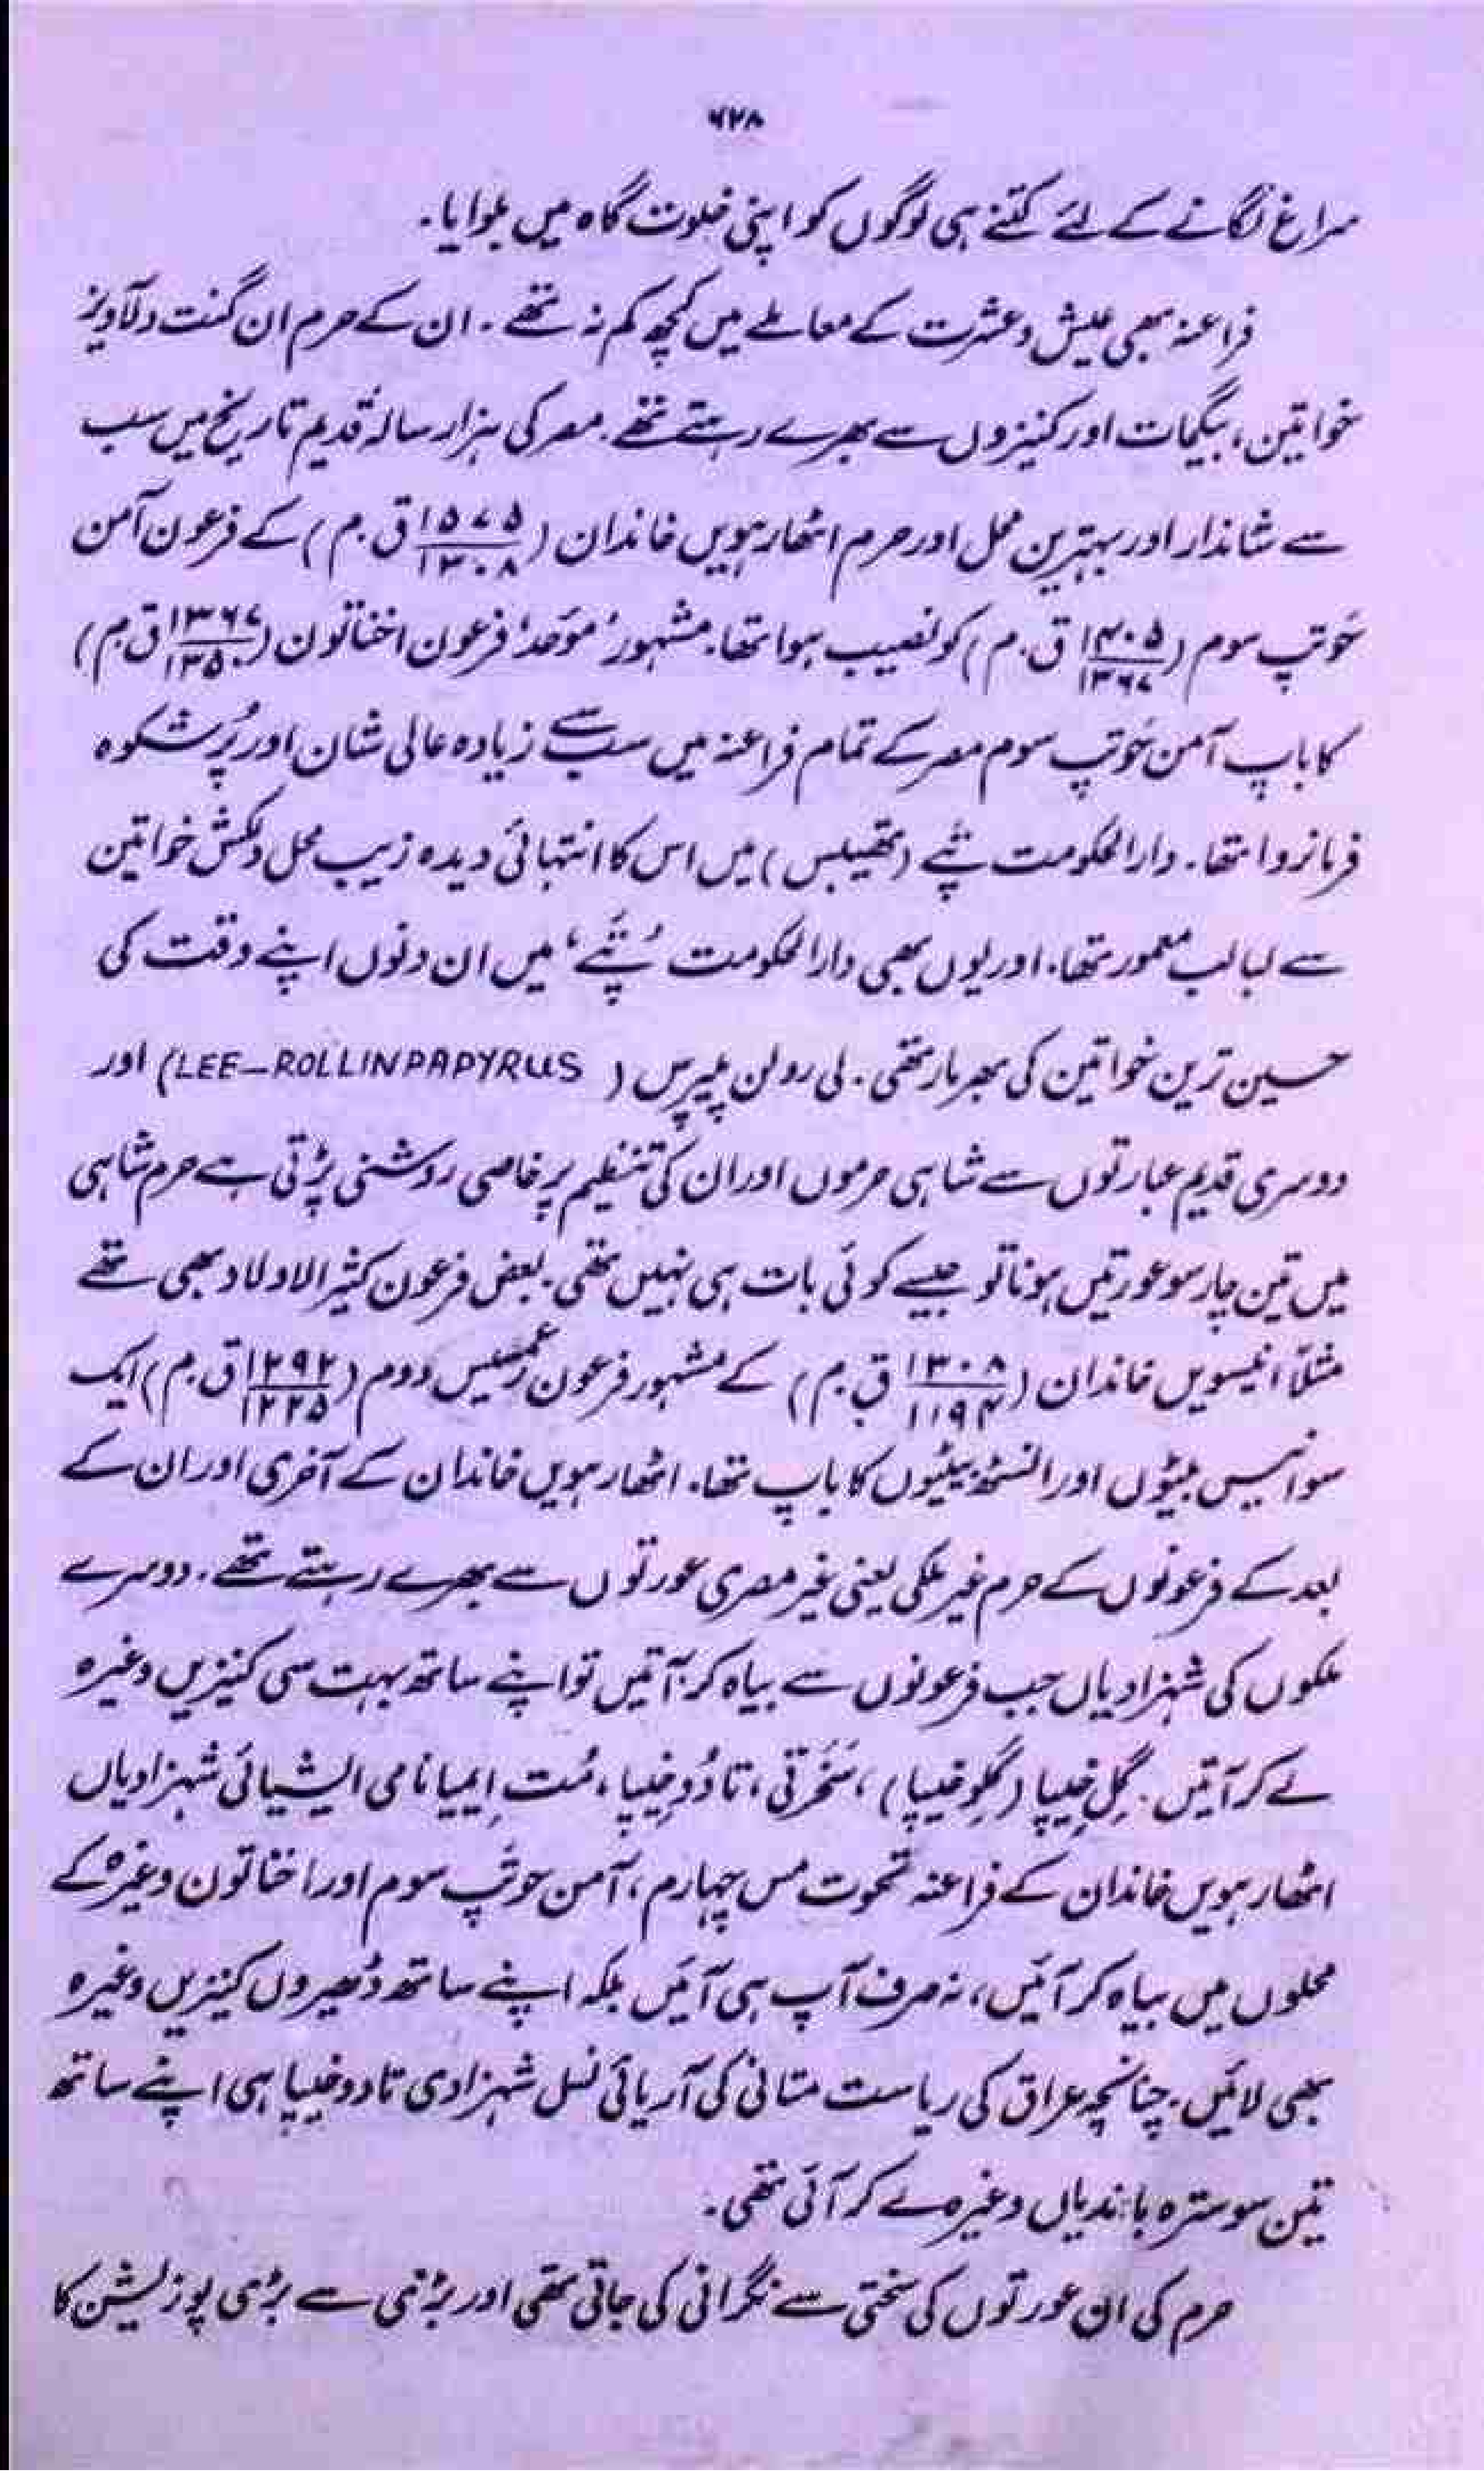 ۶۲۸
سراغ لگانے کے لئے کتنے ہی لوگوں کو اپنی خلوت گاہ میں بلوایا۔
فراعنہ بھی عیش و عشرت کے معاملے میں کچھ کم نہ تھے۔ ان کے حرم ان گنت دلآویز
خواتین، بیگمات اور کنیزوں سے بھرے رہتے تھے۔ مصر کی ہزار سالہ قدیم تاریخ میں سب
سے شاندار اور بہترین محل اور حرم اٹھارہویں خاندان (۱۵۷۵/۱۳۰۸ ق۔م) کے فرعون آمن
حَوتپ سوم (۱۴۰۵/۱۳۶۷ ق۔م) کو نصیب ہوا تھا۔ مشہور ’مَوحد‘ فرعون اخناتون (۱۳۶۷/۱۳۵۰ ق۔م)
کا باپ آمن حَوتپ سوم مصر کے تمام فراعنہ میں سب سے زیادہ عالی شان اور پُرشکوہ
فرمانروا تھا۔ دارالحکومت تپے (تھیبس) میں اس کا انتہائی دیدہ زیب محل دلکش خواتین
سے لبالب معمور تھا۔ اور یوں بھی دارالحکومت ’تَپے‘ میں ان دنوں اپنے وقت کی
حسین ترین خواتین کی بھرمار تھی۔ لی رولن پیپرس (LEE-ROLLINPAPYRUS) اور
دوسری قدیم عبارتوں سے شاہی حرموں اور ان کی تنظیم پر خاصی روشنی پڑتی ہے حرم شاہی
میں تین چار سو عورتیں ہونا تو جیسے کوئی بات ہی نہیں تھی۔ بعض فرعون کثیر الاولاد بھی تھے
مثلاً انیسویں خاندان (۱۳۰۸/۱۱۹۴ ق۔م) کے مشہور فرعون رعمسیس دوم (۱۲۹۲/۱۲۲۵ ق۔م) ایک
سو انیس بیٹوں اور انسٹھ بیٹیوں کا باپ تھا۔ اٹھارہویں خاندان کے آخری اور ان کے
بعد کے فرعونوں کے حرم غیر ملکی یعنی غیر مصری عورتوں سے بھرے رہتے تھے۔ دوسرے
ملکوں کی شہزادیاں جب فرعونوں سے بیاہ کر آتیں تو اپنے ساتھ بہت سی کنیزیں وغیرہ
لے کر آتیں۔ گِل خیپا (گلوخیپا)، سَخَرتی، تادُوخیپا، مُت اِیمیا نامی ایشیائی شہزادیاں
اٹھارہویں خاندان کے فراعنہ تحوت مس چہارم، آمن حوتپ سوم اور اخناتون وغیرہ کے
محلوں میں بیاہ کر آئیں، نہ صرف آپ ہی آئیں بلکہ اپنے ساتھ ڈھیروں کنیزیں وغیرہ
بھی لائیں۔ چنانچہ عراق کی ریاست متانی کی آریائی نسل شہزادی تادوخیپا ہی اپنے ساتھ
تین سو سترہ باندیاں وغیرہ لے کر آئی تھی۔
حرم کی ان عورتوں کی سختی سے نگرانی کی جاتی تھی اور بڑی سے بڑی پوزیشن کا